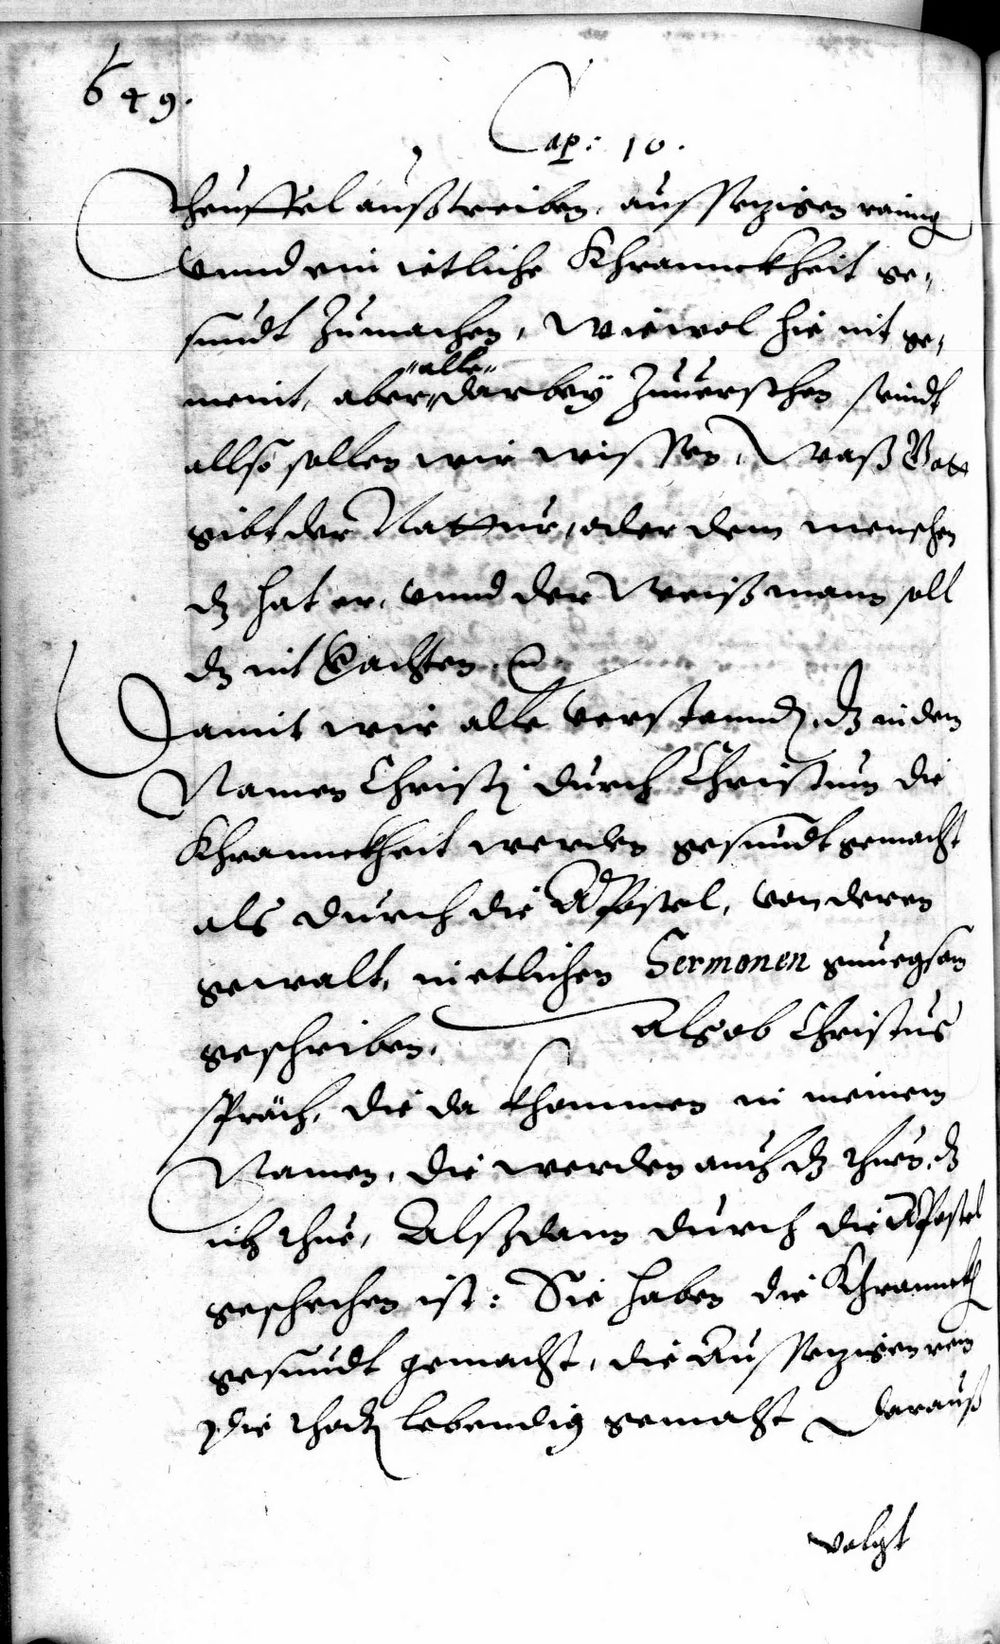 649.
Cap: 10.
Theuffel außtreiben, aussetzigen rainig
Vnnd ein ietliche Khrannckheit ge,
sundt Zumachen, Wiewol hie nit ge,
"alle"
meint, aber "darbey Zuuerstehen seindt
allso sollen wir wissen, Waß Gott
gibt der Nattur, oder dem menschen
dz hat er, vnnd der Weiß mann soll
dz nit Verachten.
Damit wir alle verstannd, dz in dem
Namen Christj durch Christum die
Khrannckheit werden gesundt gemacht
als durch die Apostel, von deren
gewalt, in etlichen Sermonen gnuegsam
geschriben, Als ob Christus
spräch, die da khommen in meinem
Namen, die werden auch dz thuen, dz
ich thue, Alß dann durch die Apostel
geschehen ist: Sie haben die Khrannckh
gesundt gemacht, die Aussetzigen rein
die thodtn lebendig gemacht Darauß
volgt